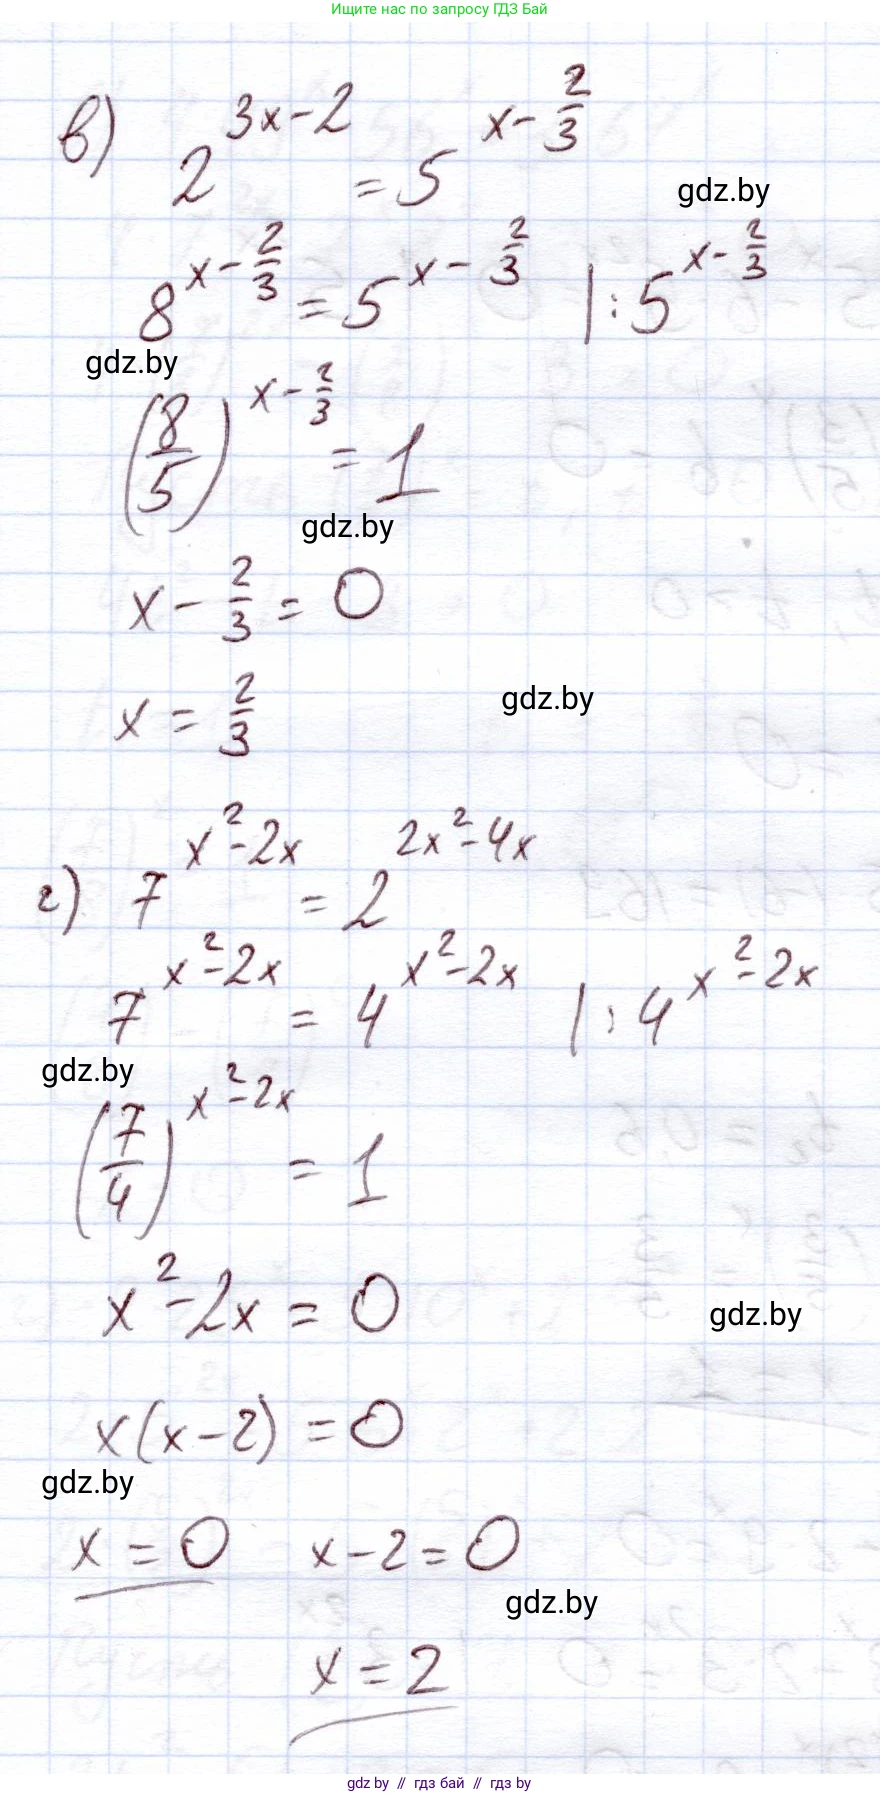 Ищите нас по запросу ГДЗ Бай
в) 2^(3x-2) = 5^(x-2/3)
gdz.by
8^(x-2/3) = 5^(x-2/3) | : 5^(x-2/3)
gdz.by
(8/5)^(x-2/3) = 1
gdz.by
x - 2/3 = 0
x = 2/3
gdz.by
г) 7^(x²-2x) = 2^(2x²-4x)
7^(x²-2x) = 4^(x²-2x) | : 4^(x²-2x)
gdz.by
(7/4)^(x²-2x) = 1
x²-2x = 0
gdz.by
x(x-2) = 0
gdz.by
x = 0 x-2 = 0
gdz.by
x = 2
gdz by // гдз бай // gdz by